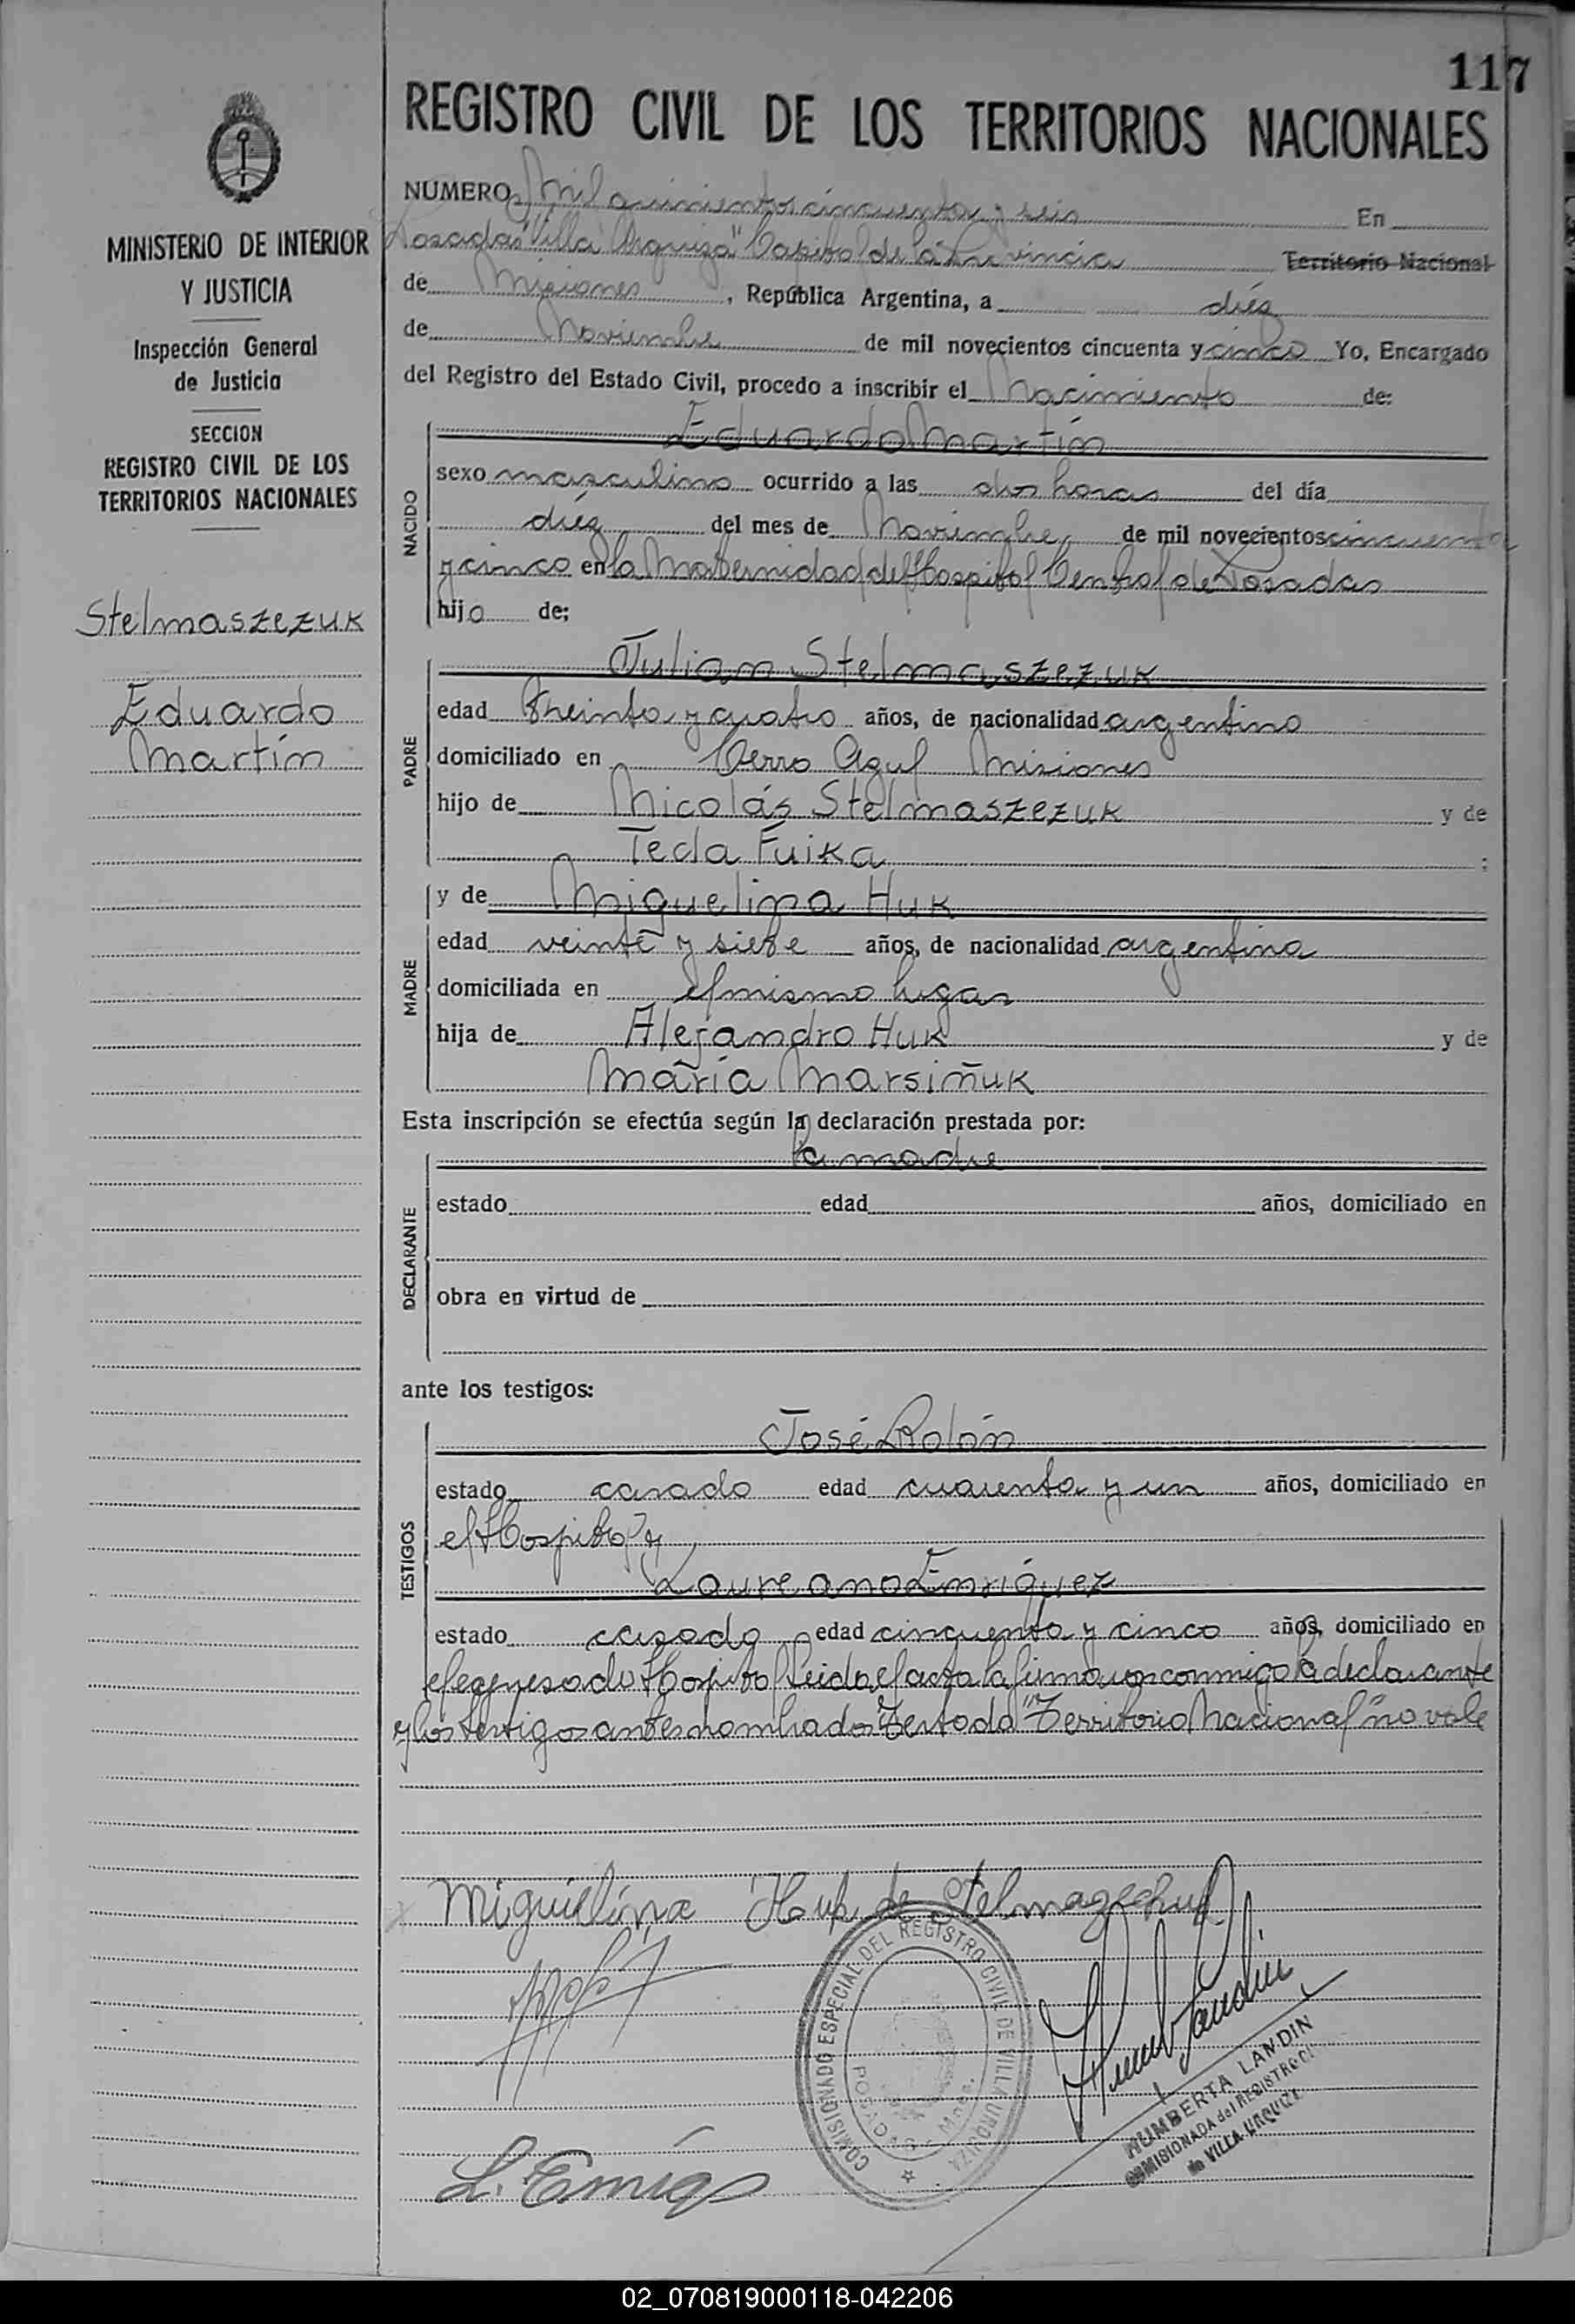 117
REGISTRO CIVIL DE LOS TERRITORIOS NACIONALES
MINISTERIO DE INTERIOR
Y JUSTICIA
Inspección General
de Justicia
SECCION
REGISTRO CIVIL DE LOS
TERRITORIOS NACIONALES
Stelmaszezuk
Eduardo
Martín
NUMERO Mil quinientos cincuenta y seis En
Posadas "Villa Urquiza" Capital de la Provincia Territorio Nacional
de Misiones, República Argentina, a diéz
de Noviembre de mil novecientos cincuenta y cinco Yo, Encargado
del Registro del Estado Civil, procedo a inscribir el Nacimiento de:
NACIDO
Eduardo Martín
sexo masculino ocurrido a las dos horas del día
diéz del mes de Noviembre de mil novecientos cincuenta
y cinco en la Maternidad del Hospital Central de Posadas
hijo de;
PADRE
Julian Stelmaszezuk
edad treinta y cuatro años, de nacionalidad argentino
domiciliado en Cerro Azul Misiones
hijo de Nicolás Stelmaszezuk y de
Tecla Fuika ;
MADRE
y de Miguelina Huk
edad veinte y siete años, de nacionalidad argentina
domiciliada en el mismo lugar
hija de Alejandro Huk y de
María Marsiñuk
Esta inscripción se efectúa según la declaración prestada por:
DECLARANTE
la madre
estado edad años, domiciliado en
obra en virtud de
ante los testigos:
TESTIGOS
José Rolón
estado casado edad cuarenta y un años, domiciliado en
el Hospital y
Laureano Enríquez
estado casado edad cincuenta y cinco años, domiciliado en
el expresado Hospital Leida el acta la firmaron conmigo la declarante
y los testigos antes nombrados Testado "Territorio Nacional" no vale
Miguielina Huk de Stelmazechuk
COMISIONADO ESPECIAL DEL REGISTRO CIVIL DE VILLA URQUIZA
POSADAS - Mnes.
L. Enriq
HUMBERTA LANDIN
COMISIONADA del REGISTRO
de VILLA URQUIZA
02_070819000118-042206